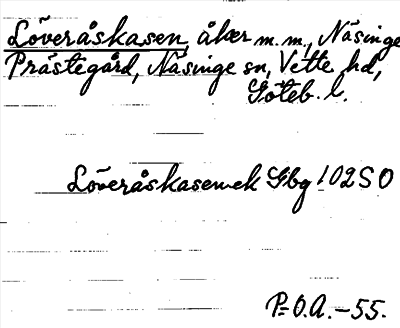 Löveråskasen, åker m.m., Näsinge
Prästegård, Näsinge sn, Vette hd,
Göteb. l.
Löveråskasen ek Gbg 102 S O
P=O.A. -55.